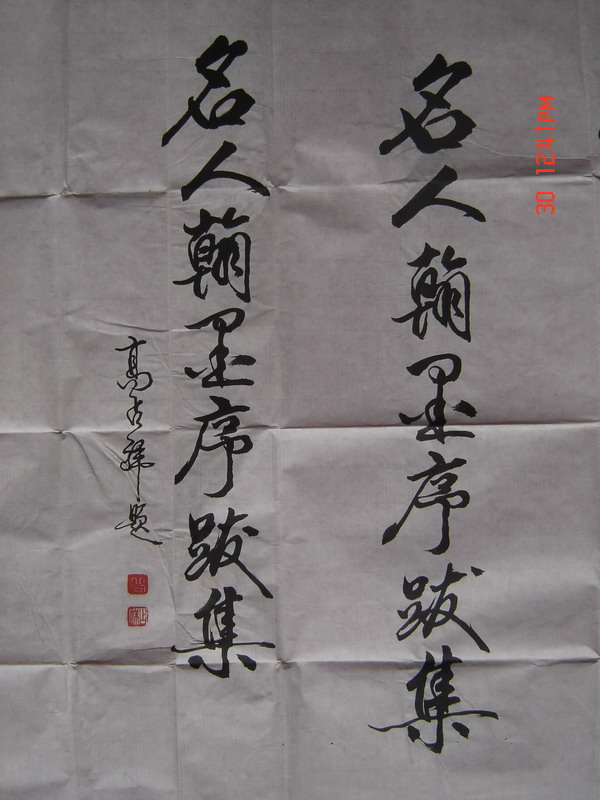 名人翰墨序跋集
名人翰墨序跋集
高占祥题
30 12:41PM